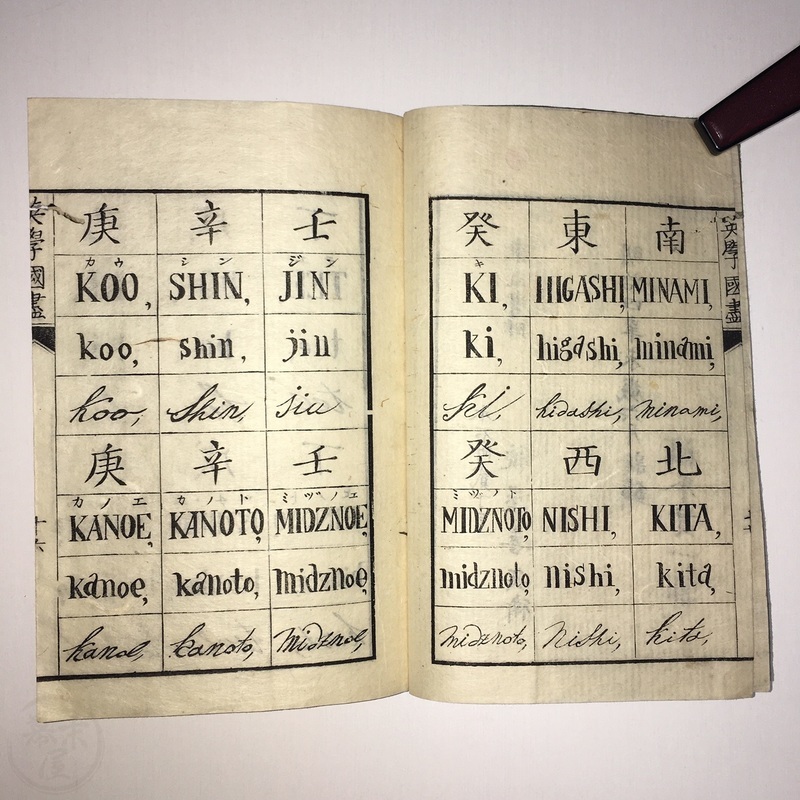 英學國盡
庚 辛 壬
カウ シン ジン
KOO, SHIN, JIN
koo, shin, jin
koo, shin, jin
庚 辛 壬
カノエ カノト ミヅノエ
KANOE, KANOTO, MIDZNOE,
kanoe, kanoto, midznoe,
kanoe, kanoto, midznoe,
癸 東 南
キ
KI, HIGASHI, MINAMI,
ki, higashi, minami,
ki, hidashi, minami,
癸 西 北
ミヅノト
MIDZNOTO, NISHI, KITA,
midznoto, nishi, kita,
midznoto, Nishi, kita,
英學國盡